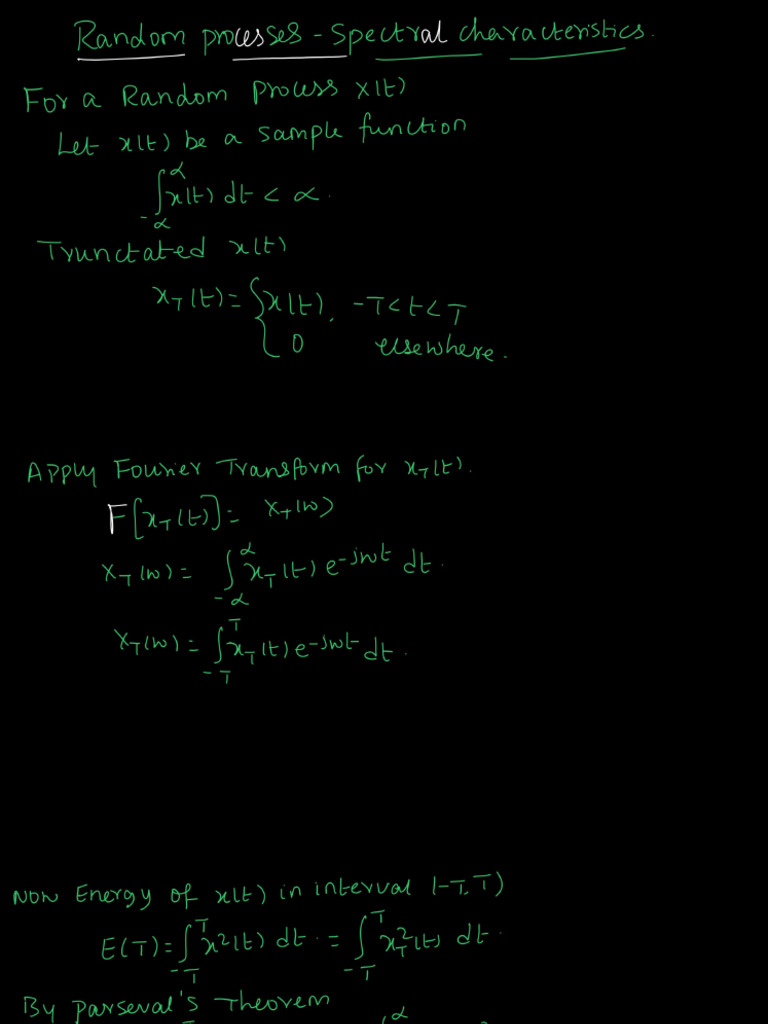 Random processes - Spectral characteristics.
For a Random Process X(t)
Let x(t) be a sample function
∫_{-α}^{α} x(t) dt < α.
Trunctated x(t)
x_T(t) = { x(t), -T < t < T
0 elsewhere.
Apply Fourier Transform for x_T(t).
F[x_T(t)] = X_T(w)
X_T(w) = ∫_{-α}^{α} x_T(t) e^{-jwt} dt.
X_T(w) = ∫_{-T}^{T} x_T(t) e^{-jwt} dt.
Now Energy of x(t) in interval (-T, T)
E(T) = ∫_{-T}^{T} x²(t) dt. = ∫_{-T}^{T} x_T²(t) dt.
By Parseval's Theorem